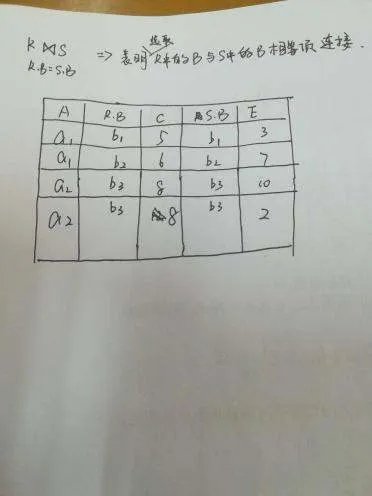 选取
R⋈S => 表明 R中的B与S中的B相等做连接.
R.B=S.B
A R.B C S.B E
a1 b1 5 b1 3
a1 b2 6 b2 7
a2 b3 8 b3 10
a2 b3 8 b3 2